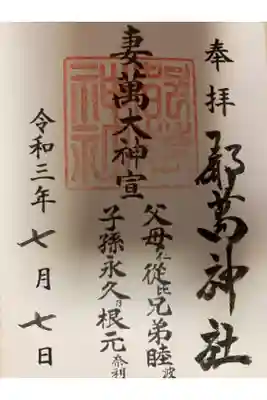 奉拝
都萬神社
妻萬大神宣
父母従比兄弟睦波
子孫永久根元奈利
令和三年七月七日